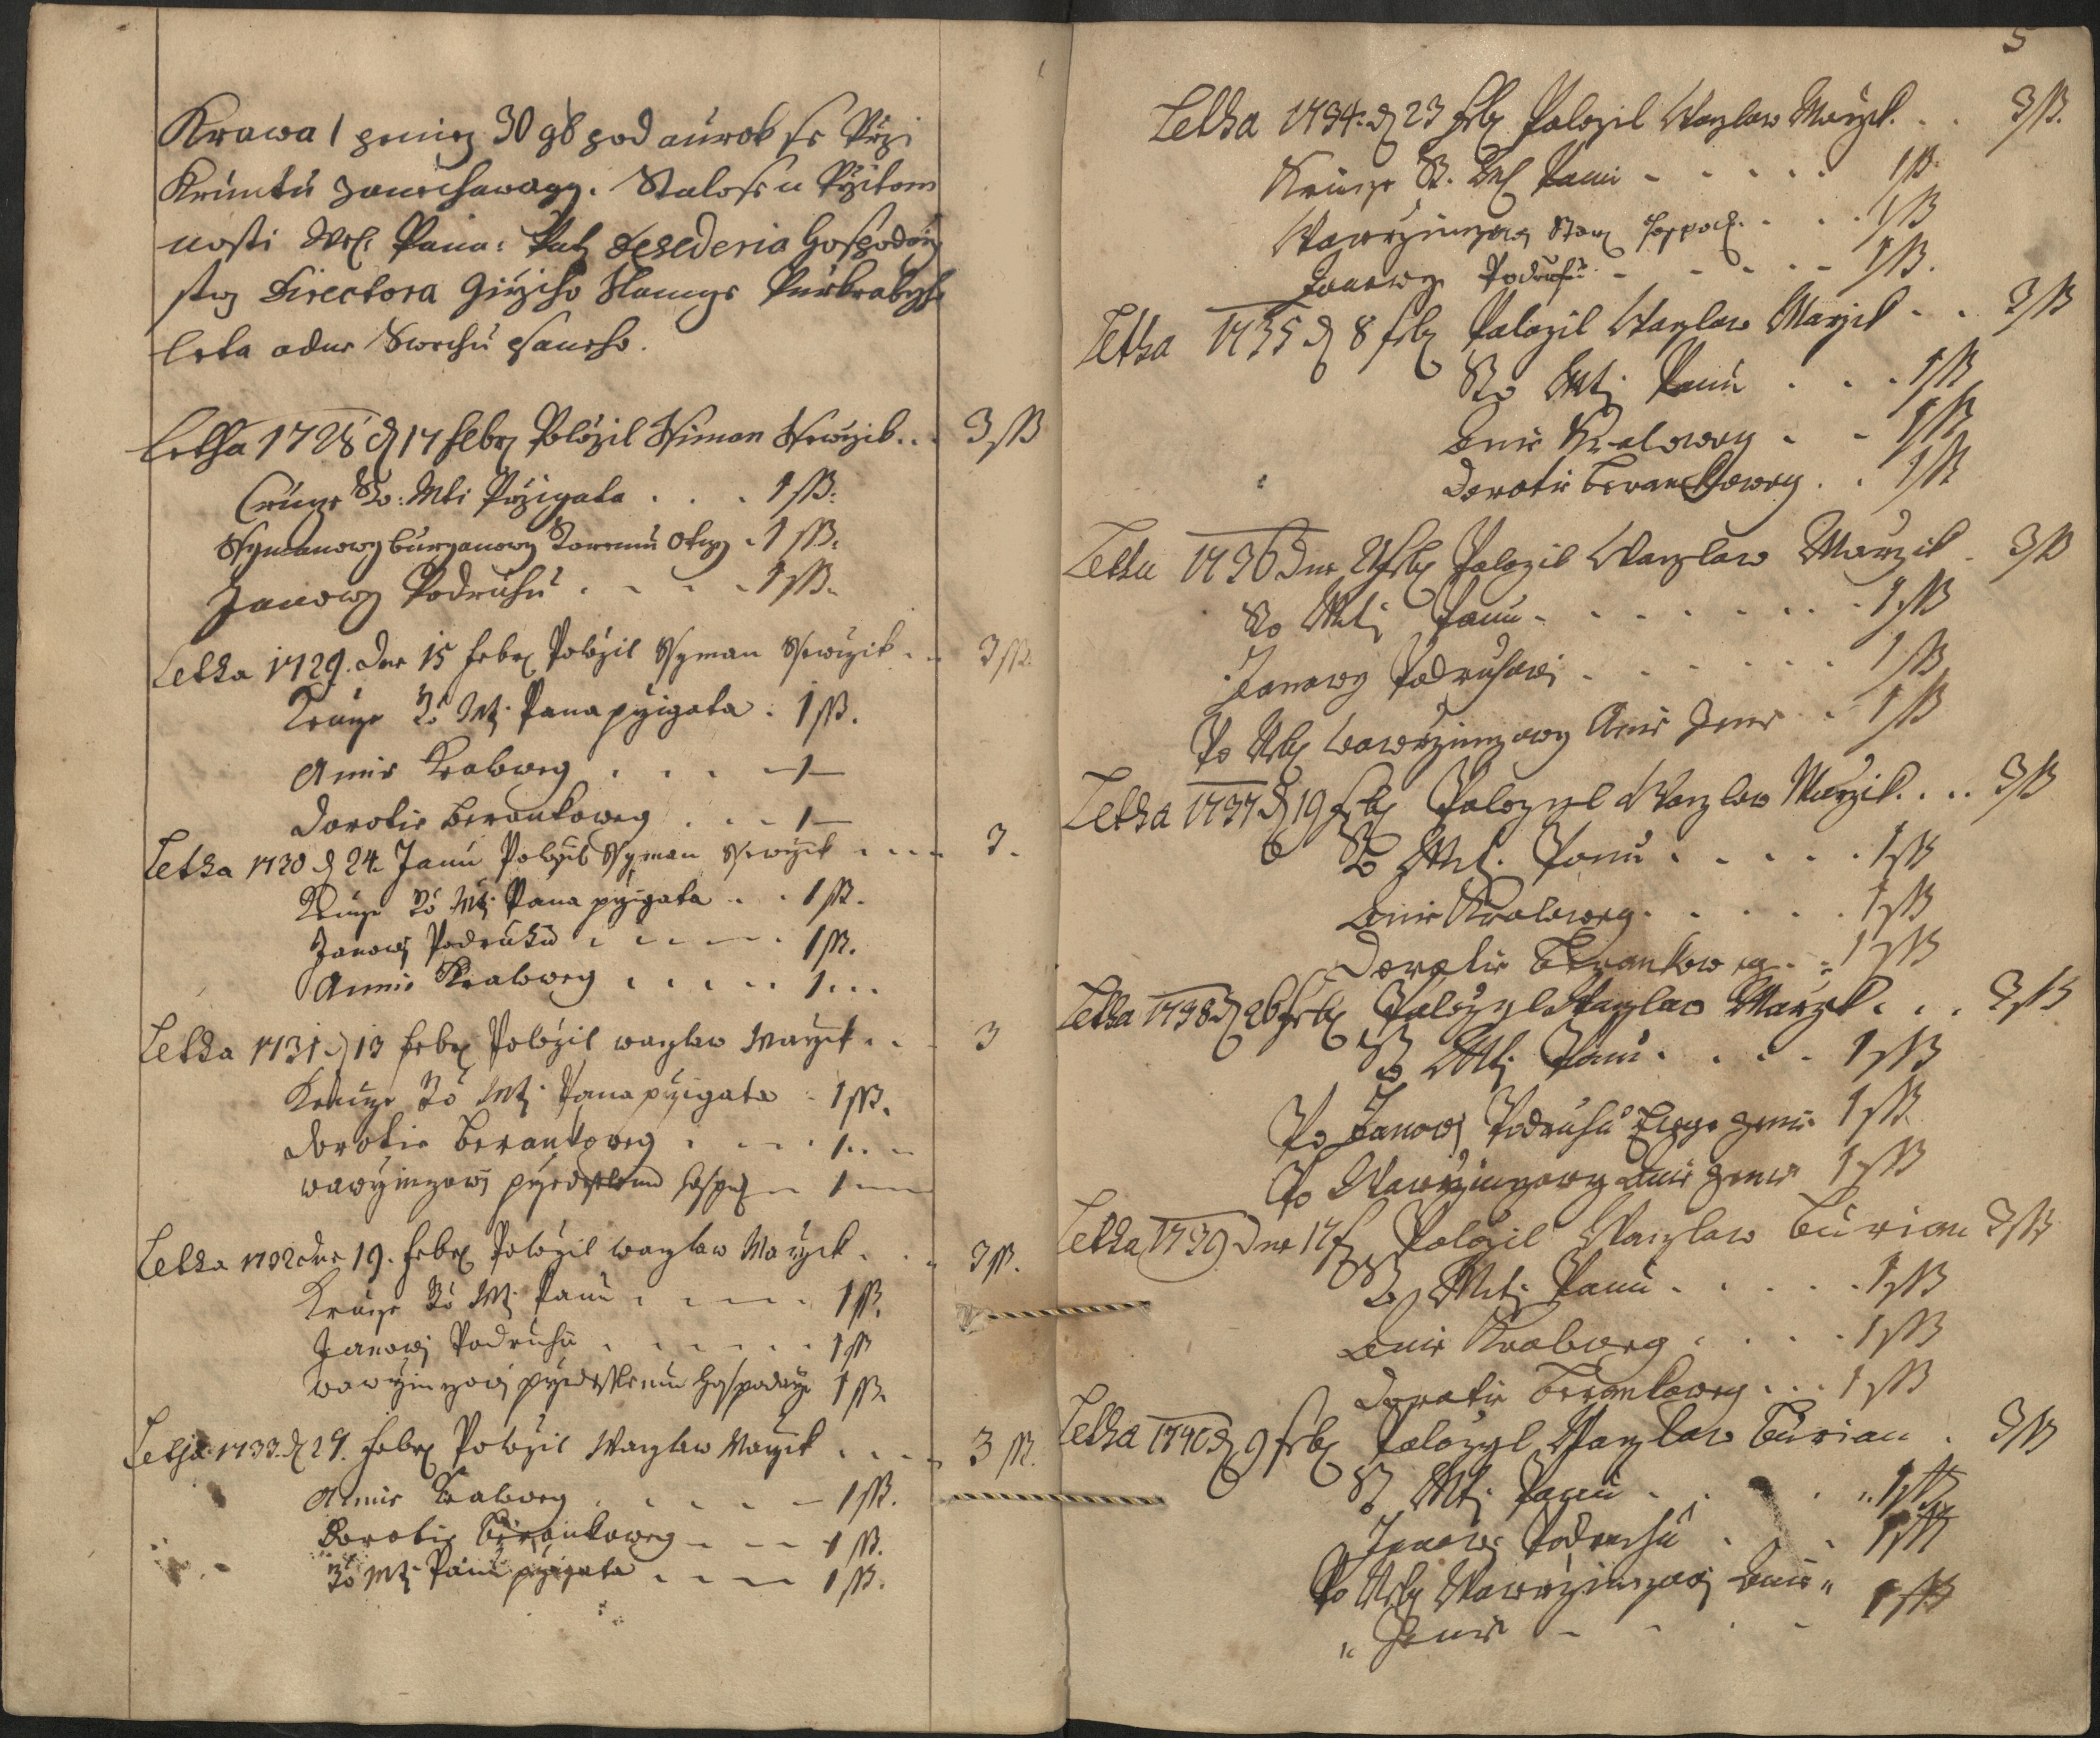 Krawa 1 peniez 30 g8 pod aurok se Przi
Kruntu zanechawagy. Stalo se u Przitom
nosti Pana: Pat Desederia Gospodarz
stwj Directora Girziho Slamys Purkrabyho
leta a dne Swrchu psaneho.
Letha 1728 d 17 Febr Polozil Ssiman Ssewczik . . . 3 ss
Cruntu Ko: Mti Przigata . . . 1 ss.
Ssymanowy Burganowy Otczy . 1 ss.
Janowy Podruhu . . . . 1 ss.
Letha 1729. dne 15 Febr Polozil Ssyman Ssewczik . . 3 ss.
Ko Mti Pana przigata . 1 ss.
Annie Kralowey . . . . 1
Dorotie Berankowey . . . 1
Letha 1730 d 24. Janu Polozil Ssyman Ssewczik . . . . 3.
Ko Mti Pana przigata . . 1 ss.
Janowj Podruhu . . . . 1 ss.
Annie Kralowey . . . . . 1 . . .
Letha 1731 d 13 Febr Polozil Waczlaw Marzik . . . 3
Ko Mti Pana przigata . 1 ss.
Dorotie Berankowey . . . . 1 . . .
Wawrzinczowj przedesslemu hospod 1
Letha 1732 dne 19. Febr Polozil Waczlaw Marzik . . . 3 ss.
Ko Mti Panu . . . . 1 ss.
Janowj Podruhu . . . . . . 1 ss
Wawrzinczowj przedesslemu Hospodarzy 1 ss.
Letha 1733. d 29. Febr Polozil Waczlaw Marzik . . . . 3 ss.
Annie Kralowey . . . . . 1 ss.
Dorotie Berankowey . . . 1 ss.
Ko Mti Panu przigata . . . . 1 ss.
5
Letha 1734. d 23 Feb Polozil Waczlaw Marzik . . . 3 ss.
Panu . . . . . 1 ss.
Wawrzinczowj Star hospod. . . . 1 ss
Janowy Podruhu . . . . . 1 ss.
Letha 1735 d 8 Feb Polozil Waczlaw Marzik . . . 3 ss
Ko Mti Panu . . . 1 ss
Annie Kralowey . . 1 ss
Dorotie Berankowey . . 1 ss
Letha 1736 dne Feb Polozil Waczlaw Marzik . 3 ss
Ko Mti Panu . . . . . . . . 1 ss
Janowy Podruhowj . . . . . . 1 ss
Po Neb Wawrzinczowy Anie Zenie . 1 ss
Letha 1737 d 19 Feb Polozyl Waczlaw Marzik . . . . 3 ss
Ko Mti Panu . . . . . 1 ss
Annie Kralowey . . . . . 1 ss
Dorotie Berankowey . . . 1 ss
Letha 1738 d 26 Feb Polozyl Waczlaw Marzik . . . 3 ss
Ko Mti Panu . . . . 1 ss
Po Janowj Podruhu Zenie 1 ss
Po Wawrzinczowy Anie Zenie 1 ss
Letha 1739 dne 17 Polozil Waczlaw Burian 3 ss
Ko Mti Panu . . . . . 1 ss
Annie Kralowey . . . . 1 ss
Dorotie Berankowey . . . 1 ss
Letha 1740 d 9 Feb Polozyl Waczlaw Burian . 3 ss
Ko Mti Panu . . . . 1 ss
Janowj Podruhu . . . 1 ss
Po Neb Wawrzinczowj Anie „ 1 ss
„ Zenie - - . -